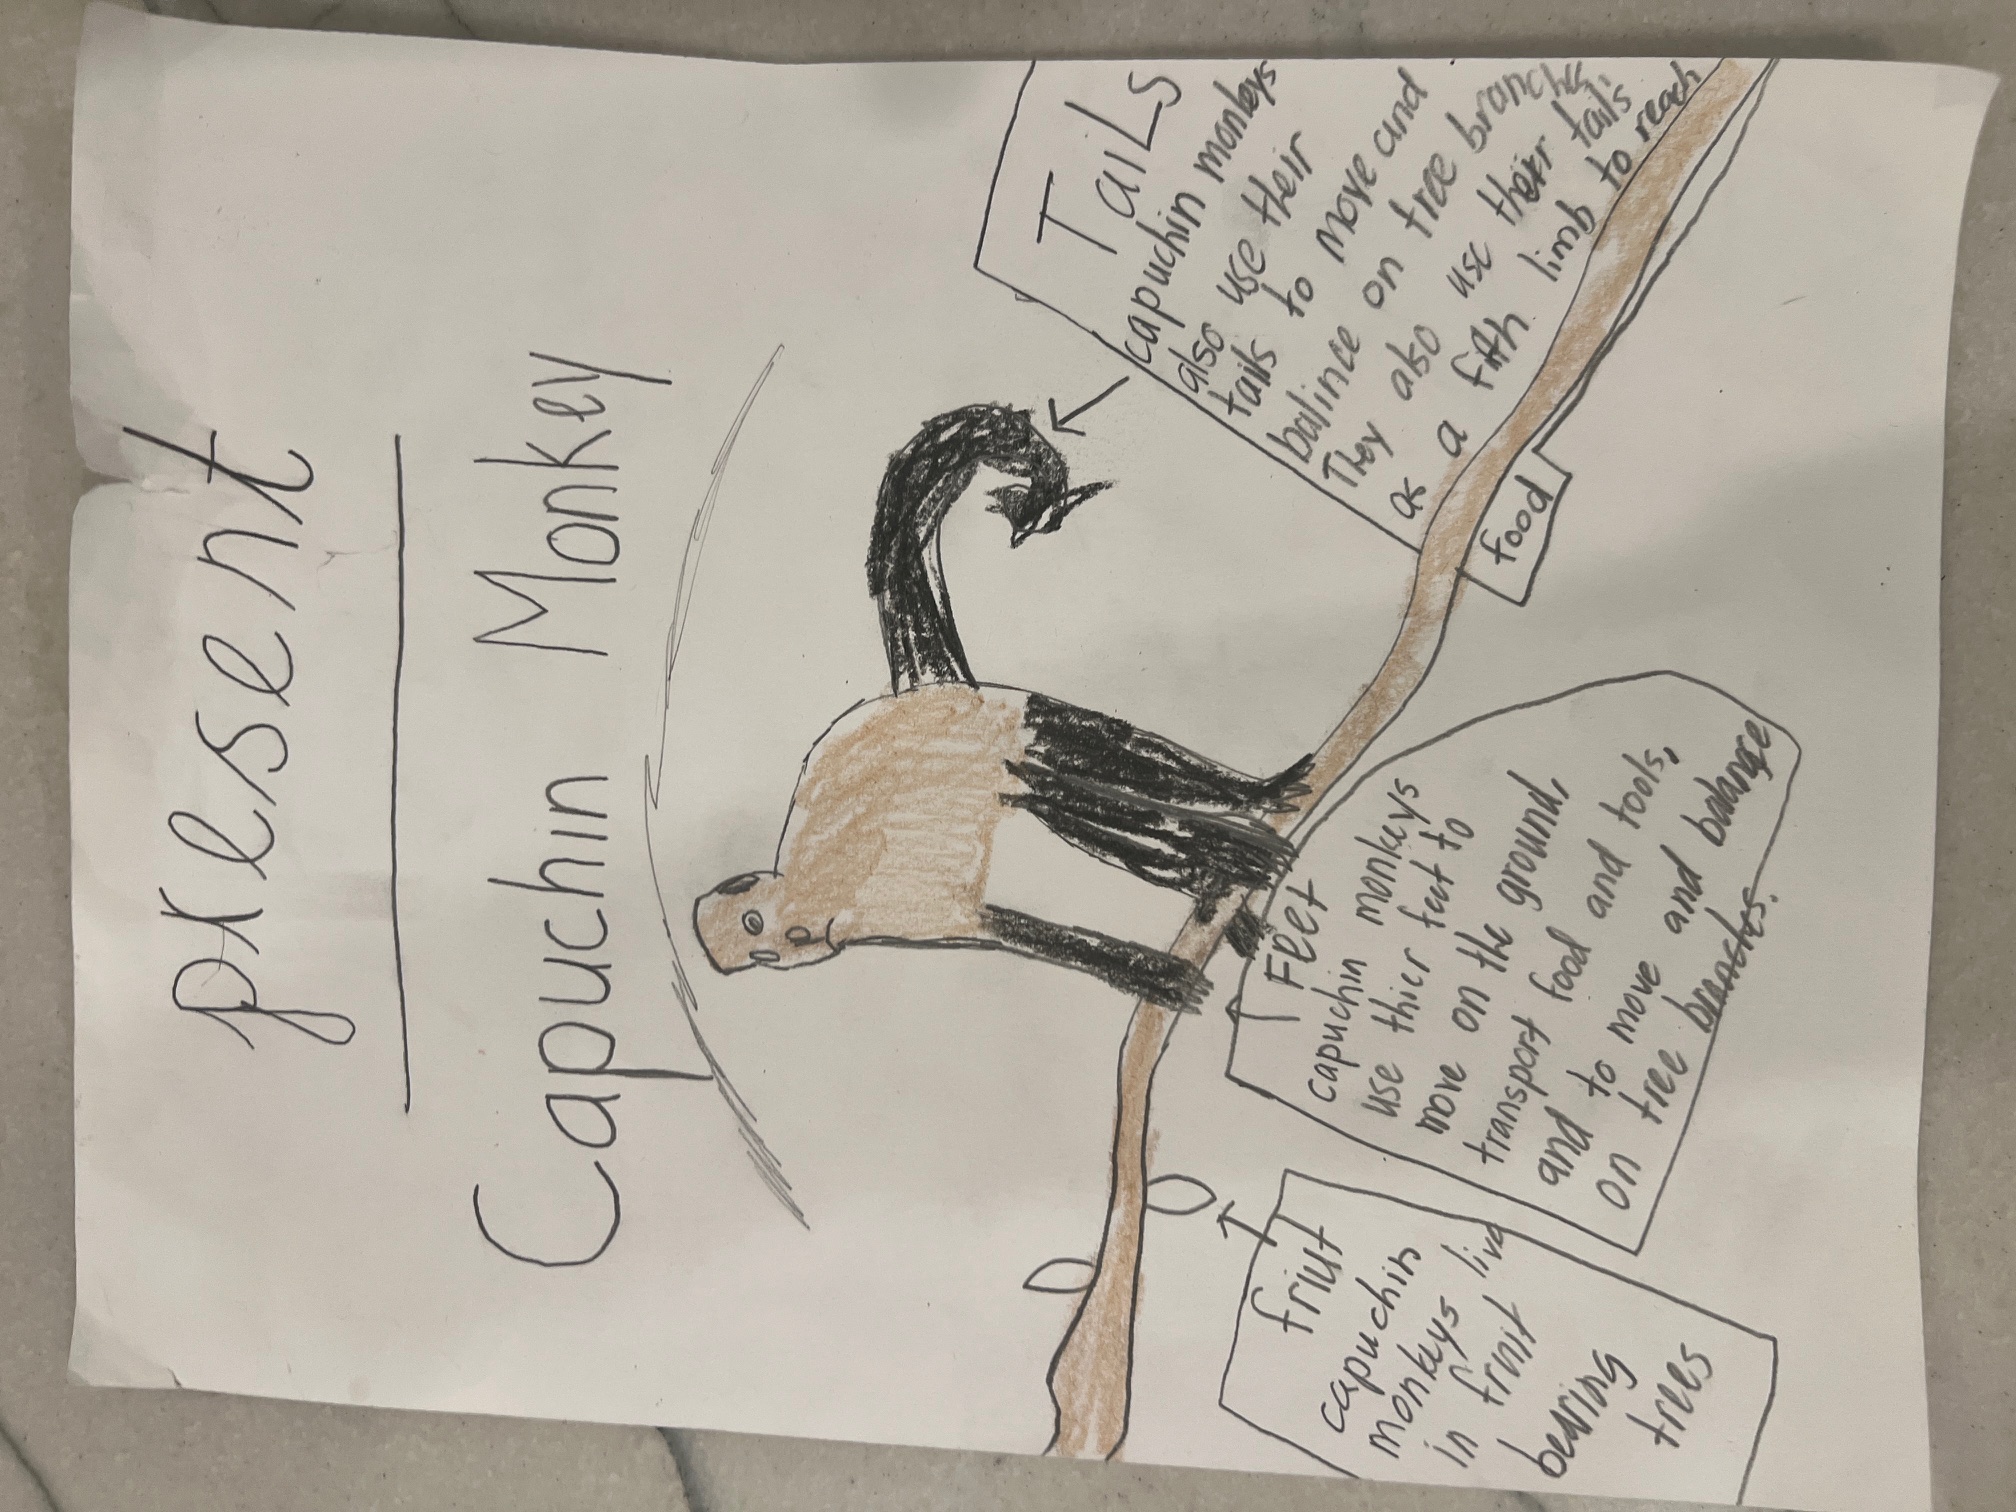 present
Capuchin Monkey
Tails
capuchin monkeys
also use their
tails to move and
balince on tree branchs.
They also use their tails
as a fifth limb to reach
food
Feet
capuchin monkeys
use thier feet to
move on the ground,
transport food and tools,
and to move and balance
on tree branches.
friut
capuchin
monkeys live
in fruit
bearing
trees